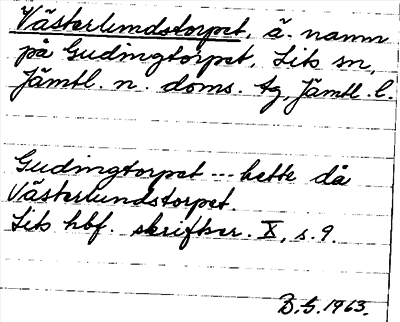 Västerlundstorpet, ä. namn
på Gudingtorpet, Lits sn,
Jämtl. n. doms. tg, Jämtl. l.
Gudingtorpet --- hette då
Västerlundstorpet.
Lits hbf. skrifter. X, s. 9.
D.S. 1963.